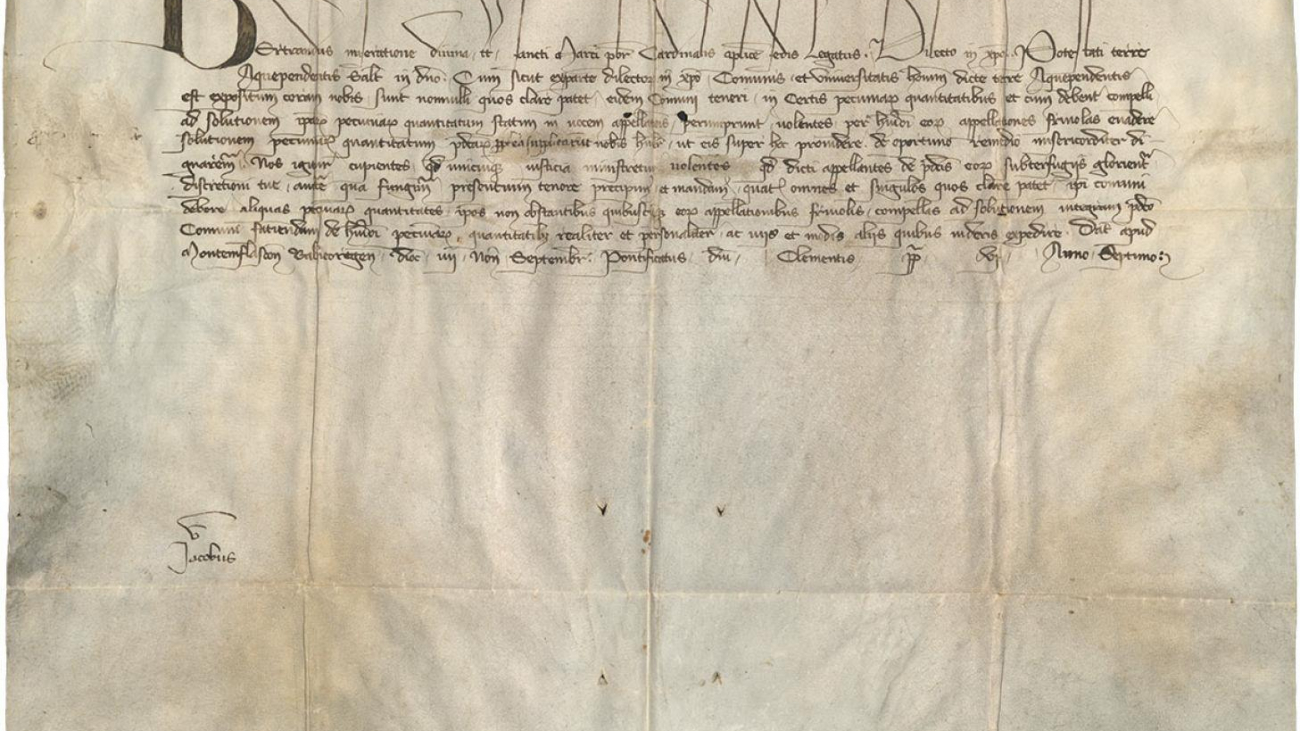 Bertrandus miseratione divina tt. sancti Marci pbr Cardinalis aplice sedis Legatus. Dilecto in xpo Potestati terre
Aquependentis Salt in dno. Cum sicut exparte dilectorum in xpo Comunis et Universitatis homm dicte terre Aquependentis
est expositum coram nobis sunt nonnulli quos clare patet eidem Comuni teneri in Certis pecuniarum quantitatibus et cum debent compelli
ad solutionem ipar pecuniarum quantitatum statim in vocem appellationis perrumpunt volentes per hmoi eorum appellationes frivolas evadere
solutionem pecuniarum quantitatum pdcar supplicatum nobis hmlr ut eis super hec providere de oportuno remedio misericorditer di
gnarem. Nos igitur cupientes qd unicuique iusticia ministretur nolentes qd dicti appellantes de pdcis eorum subterfugiis glorient
discretioni tue aucte qua fungim presentium tenore precipim et mandam quat omnes et singulos quos clare patet ipi comuni
debere aliquas pecuniarum quantitates ipos non obstantibus quibuscumque eorum appellationibus frivolis compellas ad solutionem integram pdco
Comuni faciendam de hmoi pecuniarum quantitatib realiter et personaliter ac viis et modis aliis quibus videris expedire. Dat apud
Montemflascon Balneoregen dioc iiii Non Septembr. Pontificatus dni Clementis pp vi Anno Septimo.
Jacobus